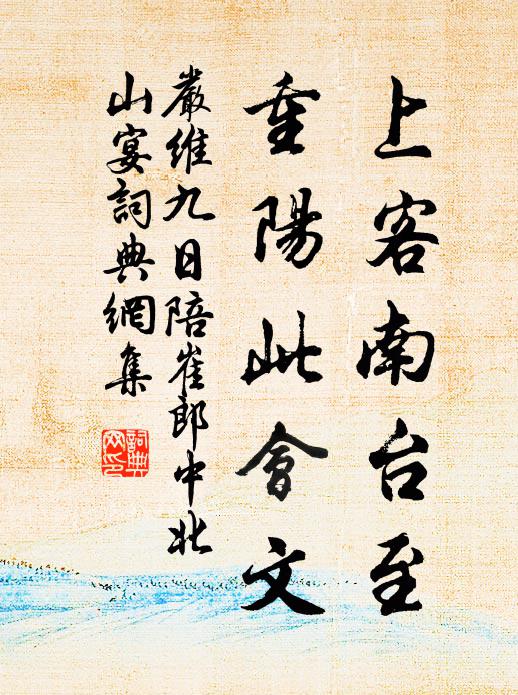 上客南台至
重陽此會文
嚴維九日陪崔郎中北
山宴詞典網集
詞典
网印